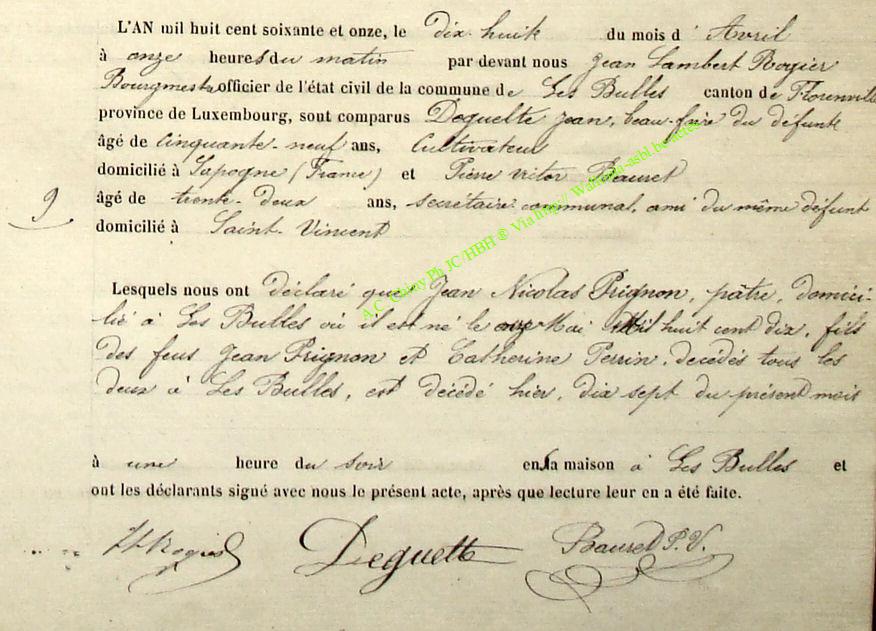 L'AN mil huit cent soixante et onze, le dix-huit du mois d'Avril
à onze heures du matin par devant nous Jean Lambert Rogier
Bourgmestre officier de l'état civil de la commune de Les Bulles canton de Florenville
province de Luxembourg, sont comparus Deguelte Jean, beau-frère du défunt
âgé de Cinquante-neuf ans, Cultivateur
domicilié à Sapogne (France) et Pierre Victor Bauret
9 âgé de trente-deux ans, secrétaire communal, ami du même défunt
domicilié à Saint-Vincent
Lesquels nous ont déclaré que Jean Nicolas Prignon, pâtre, domici-
lié à Les Bulles où il est né le onze Mai Mil huit cent dix, fils
des feus Jean Prignon et Catherine Perrin, décédés tous les
deux à Les Bulles, est décédé hier, dix sept du présent mois
à une heure du soir en sa maison à Les Bulles et
ont les déclarants signé avec nous le présent acte, après que lecture leur en a été faite.
Rogier Deguelte Bauret P.V.
A.C. Chiny Ph JC/HBH ® Via http://